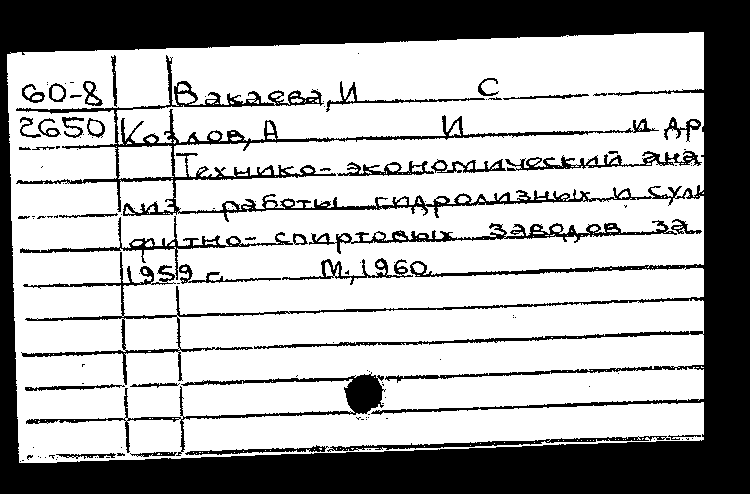 60-8 Вакаева, И С
2650 Козлов, А И и др.
Технико-экономический ана-
лиз работы гидролизных и суль
фитно-спиртовых заводов за
1959 г. М., 1960